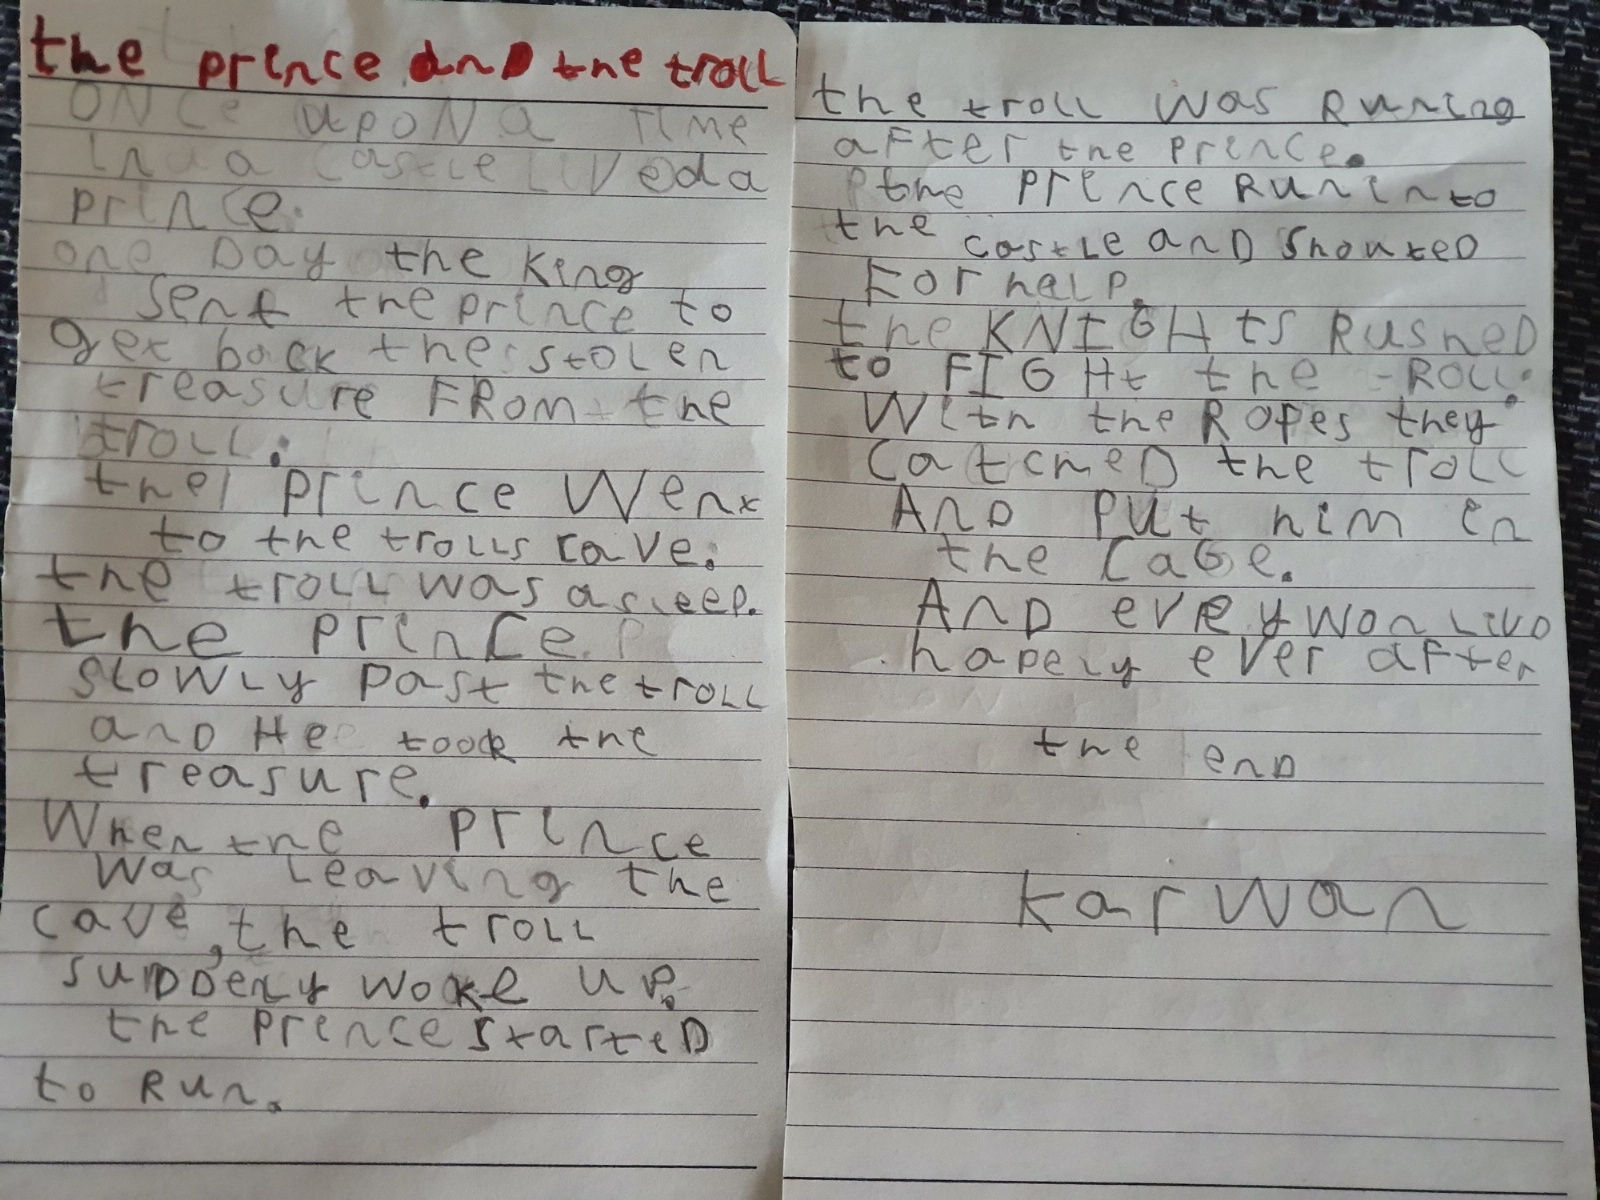 the prince anD the troll
ONCe upoN a TIMe
in a castle LIVeda
prince.
one Day the King
sent the prince to
get back the stolen
treasure FRom the
troll.
the prince Went
to the trolls cave.
the troll was asleep.
the prince
slowly past the troll
anD He took the
treasure.
When the prince
was leaving the
cave, the troll
suDDenly woke up.
the prince starteD
to Run.
the troll was Runing
aFter the prince.
the prince Run into
the castle anD shouteD
For help.
the KNIGHts RusheD
to FIGHt the tROLL.
With the Ropes they
CatcheD the troll
AnD put him in
the CaGe.
AnD evreywon LivD
hapely ever aFter
the enD
karwan